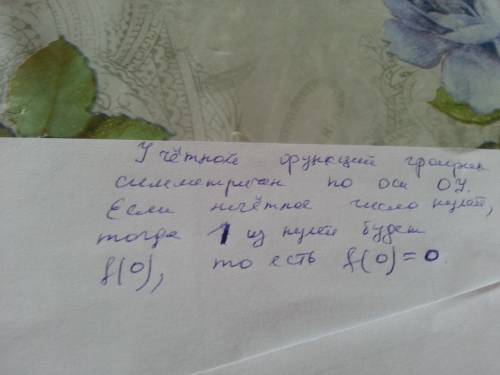 У чётной функций график
симметричен по оси ОУ.
Если нечётное число нулей,
тогда 1 из нулей будет
f(0), то есть f(0)=0.